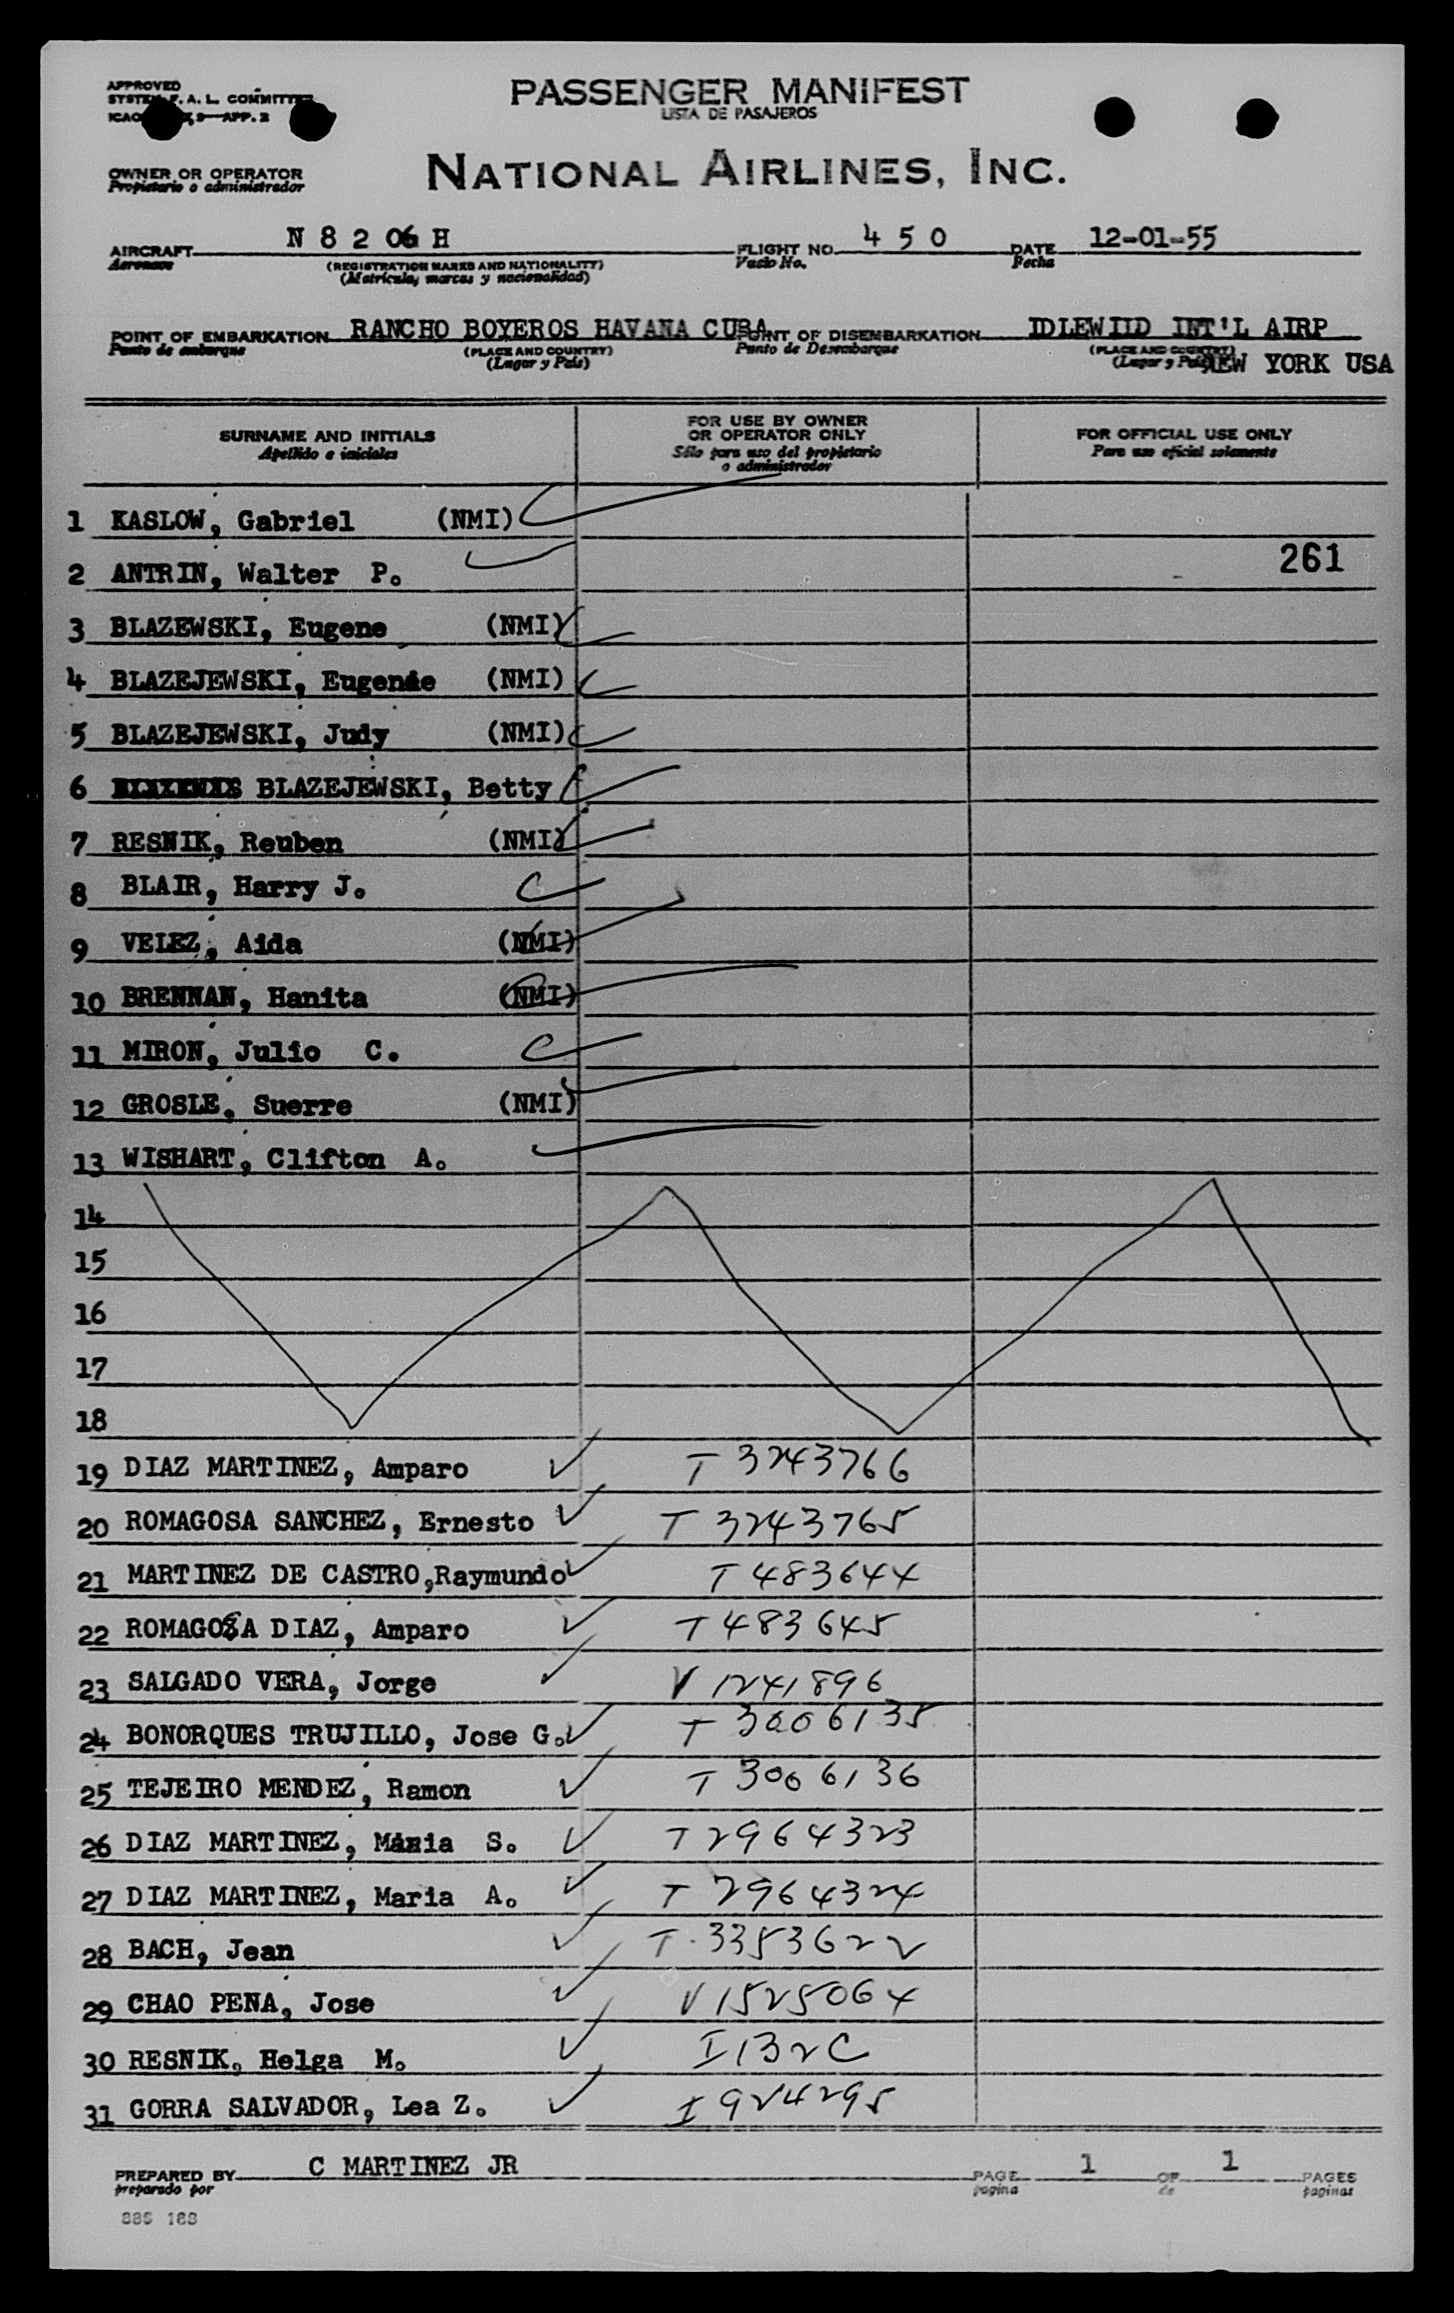 APPROVED
SYSTEM F. A. L. COMMITTEE
ICAO 9—APP. 2
PASSENGER MANIFEST
LISTA DE PASAJEROS
OWNER OR OPERATOR
Propietario o administrador
NATIONAL AIRLINES, INC.
AIRCRAFT N 8 2 06 H FLIGHT NO. 4 5 0 DATE 12-01-55
Aeronave (REGISTRATION MARKS AND NATIONALITY) Vuelo No. Fecha
(Matricula, marcas y nacionalidad)
POINT OF EMBARKATION RANCHO BOYEROS HAVANA CUBA POINT OF DISEMBARKATION IDLEWIID INT'L AIRP
Punto de embarque (PLACE AND COUNTRY) Punto de Desembarque (PLACE AND COUNTRY)
(Lugar y País) (Lugar y País) NEW YORK USA
SURNAME AND INITIALS FOR USE BY OWNER OR OPERATOR ONLY FOR OFFICIAL USE ONLY
Apellido e iniciales Sólo para uso del propietario o administrador Para uso oficial solamente
1 KASLOW, Gabriel (NMI)
261
2 ANTRIN, Walter P.
3 BLAZEWSKI, Eugene (NMI)
4 BLAZEJEWSKI, Eugenie (NMI)
5 BLAZEJEWSKI, Judy (NMI)
6 BLAZEJEWSKI, Betty
7 RESNIK, Reuben (NMI)
8 BLAIR, Harry J.
9 VELEZ, Aida (NMI)
10 BRENNAN, Hanita (NMI)
11 MIRON, Julio C.
12 GROSLE, Suerre (NMI)
13 WISHART, Clifton A.
14
15
16
17
18
19 DIAZ MARTINEZ, Amparo T 3243766
20 ROMAGOSA SANCHEZ, Ernesto T 3243765
21 MARTINEZ DE CASTRO,Raymundo T 483644
22 ROMAGOSA DIAZ, Amparo T 483645
23 SALGADO VERA, Jorge V 1241896
24 BONORQUES TRUJILLO, Jose G. T 3006135
25 TEJEIRO MENDEZ, Ramon T 3006136
26 DIAZ MARTINEZ, Maria S. T 2964323
27 DIAZ MARTINEZ, Maria A. T 2964324
28 BACH, Jean T 3353622
29 CHAO PENA, Jose V 1525064
30 RESNIK, Helga M. I 132C
31 GORRA SALVADOR, Lea Z. I 924295
PREPARED BY C MARTINEZ JR PAGE 1 OF 1 PAGES
preparado por pagina de paginas